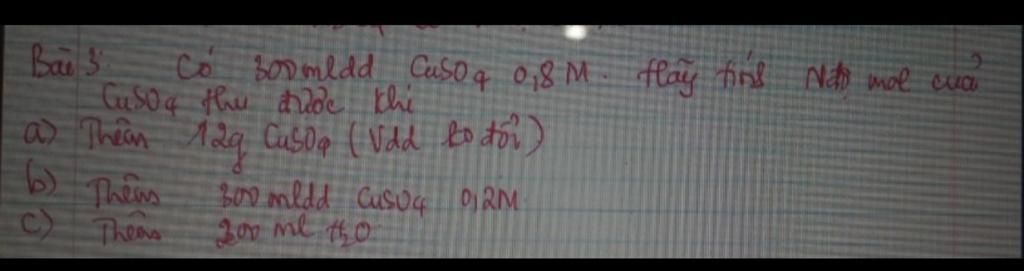 Bài 3: Có 300ml dd CuSO4 0,8M. Hãy tính Nđộ mol của
CuSO4 thu được khi
a) Thêm 12g CuSO4 (Vdd ko đổi)
b) Thêm 300ml dd CuSO4 0,2M
c) Thêm 200 ml H2O